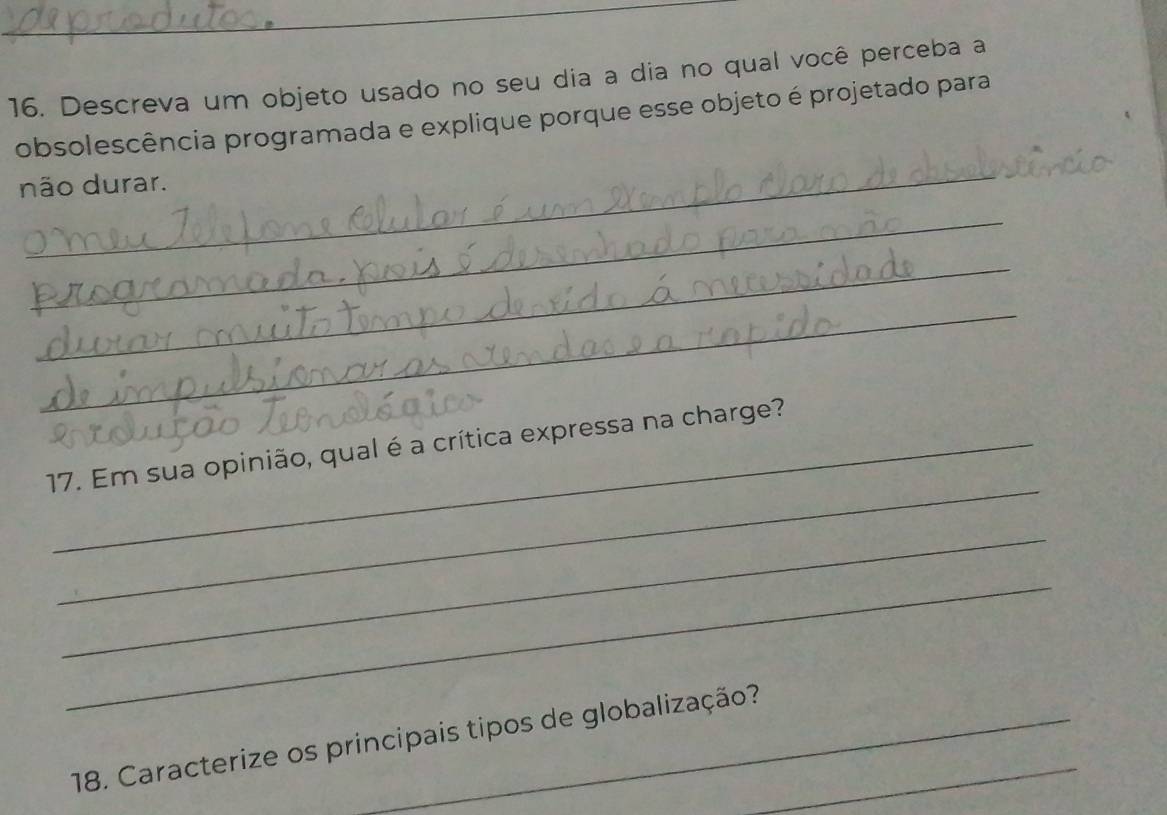 de produtos.
16. Descreva um objeto usado no seu dia a dia no qual você perceba a
obsolescência programada e explique porque esse objeto é projetado para
não durar.
o meu Telefone celular é um exemplo claro de obsolescência
programada. pois é desenhado para não
durar muito tempo devido á necessidade
de impulsionar as vendas e a rapida
evolução Tecnológica
17. Em sua opinião, qual é a crítica expressa na charge?
18. Caracterize os principais tipos de globalização?